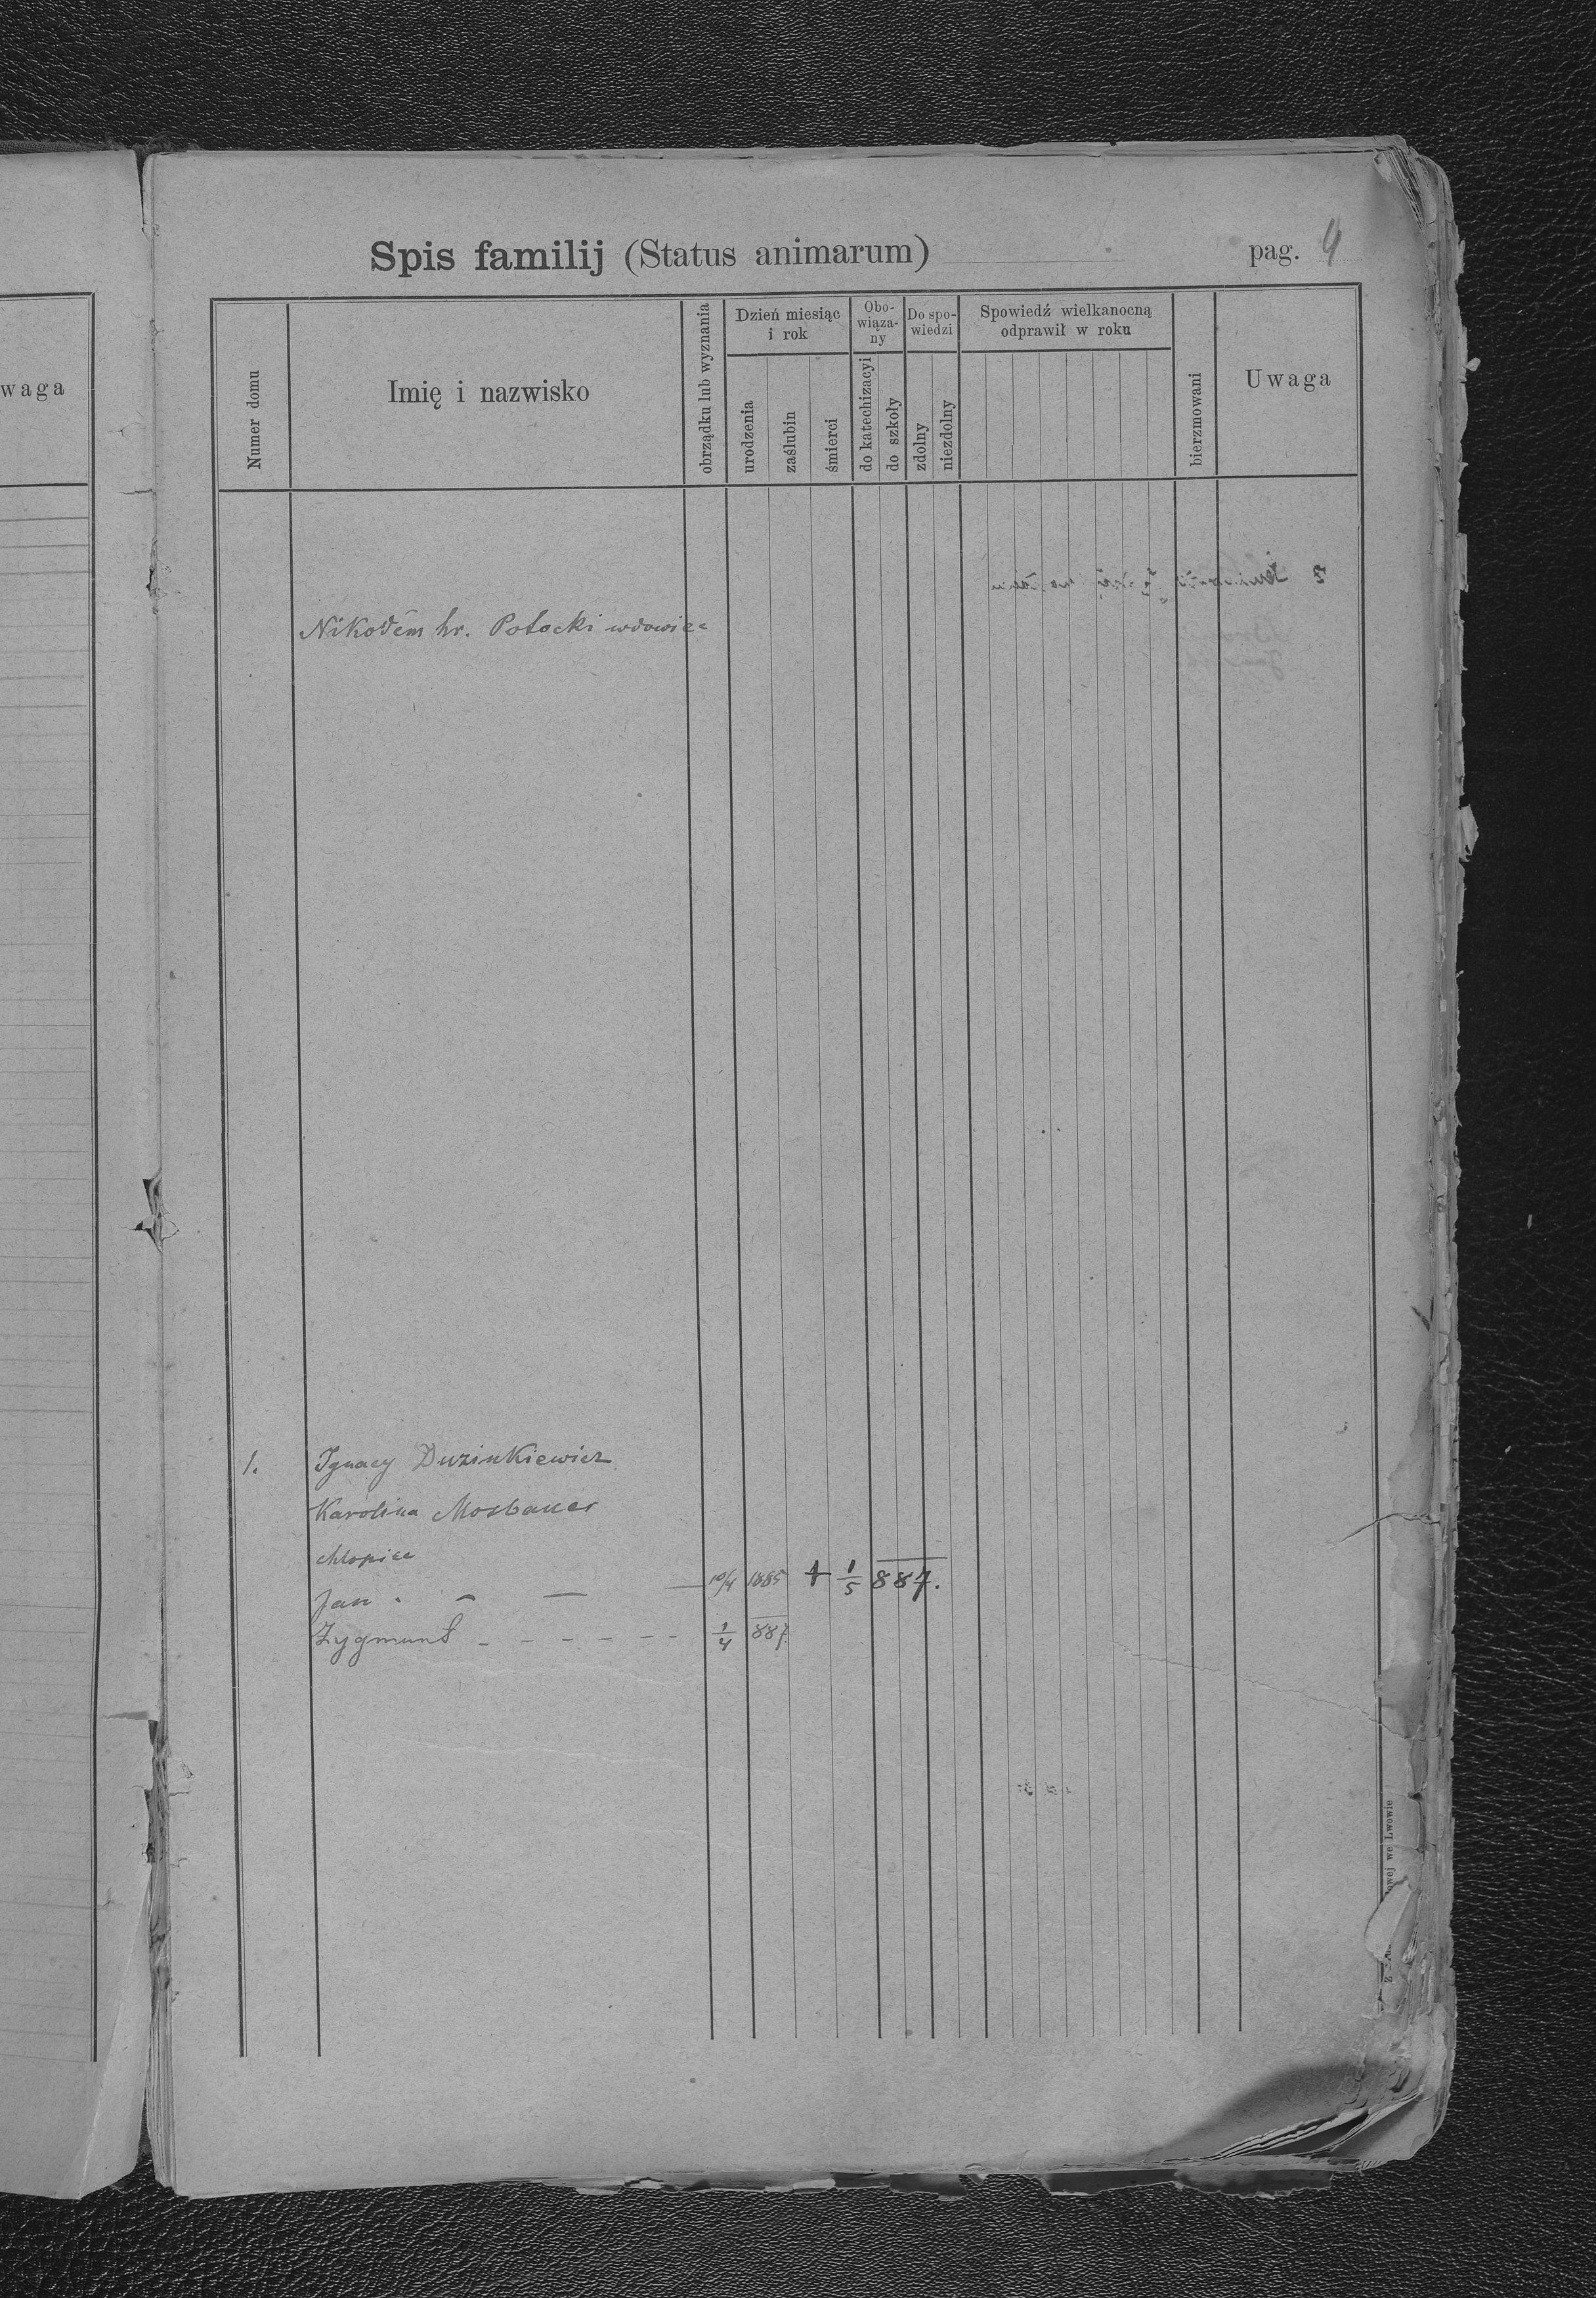 waga
Spis familij (Status animarum) pag. 4
Numer domu
Imię i nazwisko
obrządku lub wyznania
Dzień miesiąc
i rok
urodzenia
zaślubin
śmierci
Obo-
wiąza-
ny
do katechizacyi
do szkoły
Do spo-
wiedzi
zdolny
niezdolny
Spowiedź wielkanocną
odprawił w roku
bierzmowani
Uwaga
Nikodem hr. Potocki wdowiec
1. Ignacy Duzinkiewicz
Karolina Mosbauer
chłopiec
Jan - - — — 10/4 1885 + 1/5 887.
Zygmunt - - - - - - 1/4 887.
wej we Lwowie